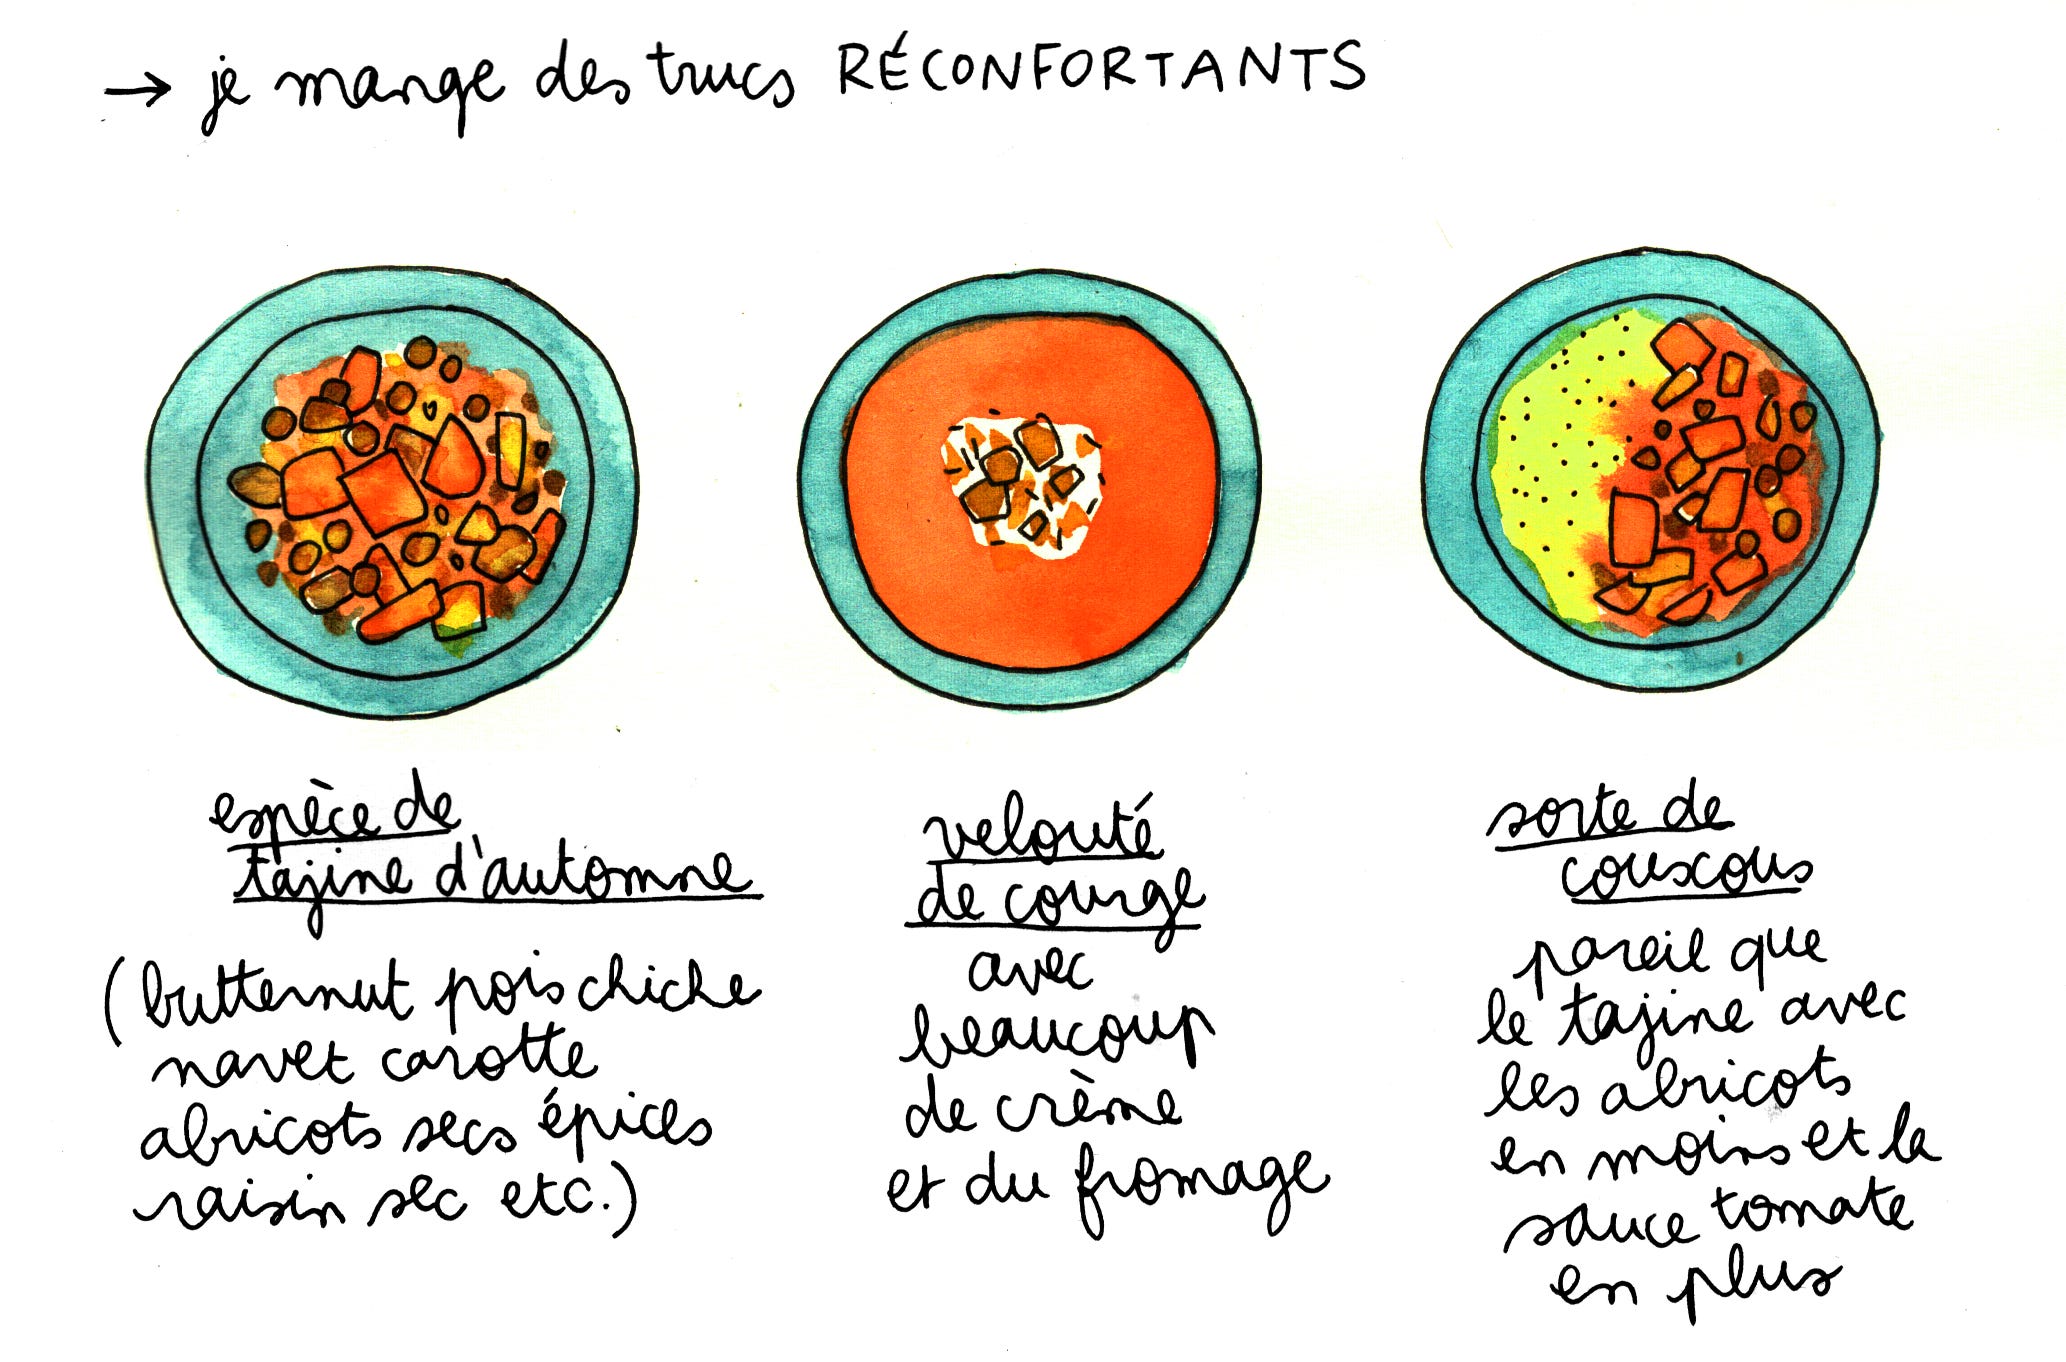 → je mange des trucs RÉCONFORTANTS
espèce de
tajine d'automne
(butternut pois chiche
navet carotte
abricots secs épices
raisin sec etc.)
velouté
de courge
avec
beaucoup
de crème
et du fromage
sorte de
couscous
pareil que
le tajine avec
les abricots
en moins et la
sauce tomate
en plus